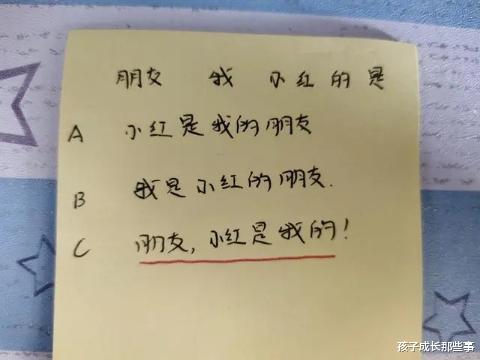 朋友 我 小红 的 是
A 小红是我的朋友
B 我是小红的朋友.
C 朋友,小红是我的!
孩子成长那些事